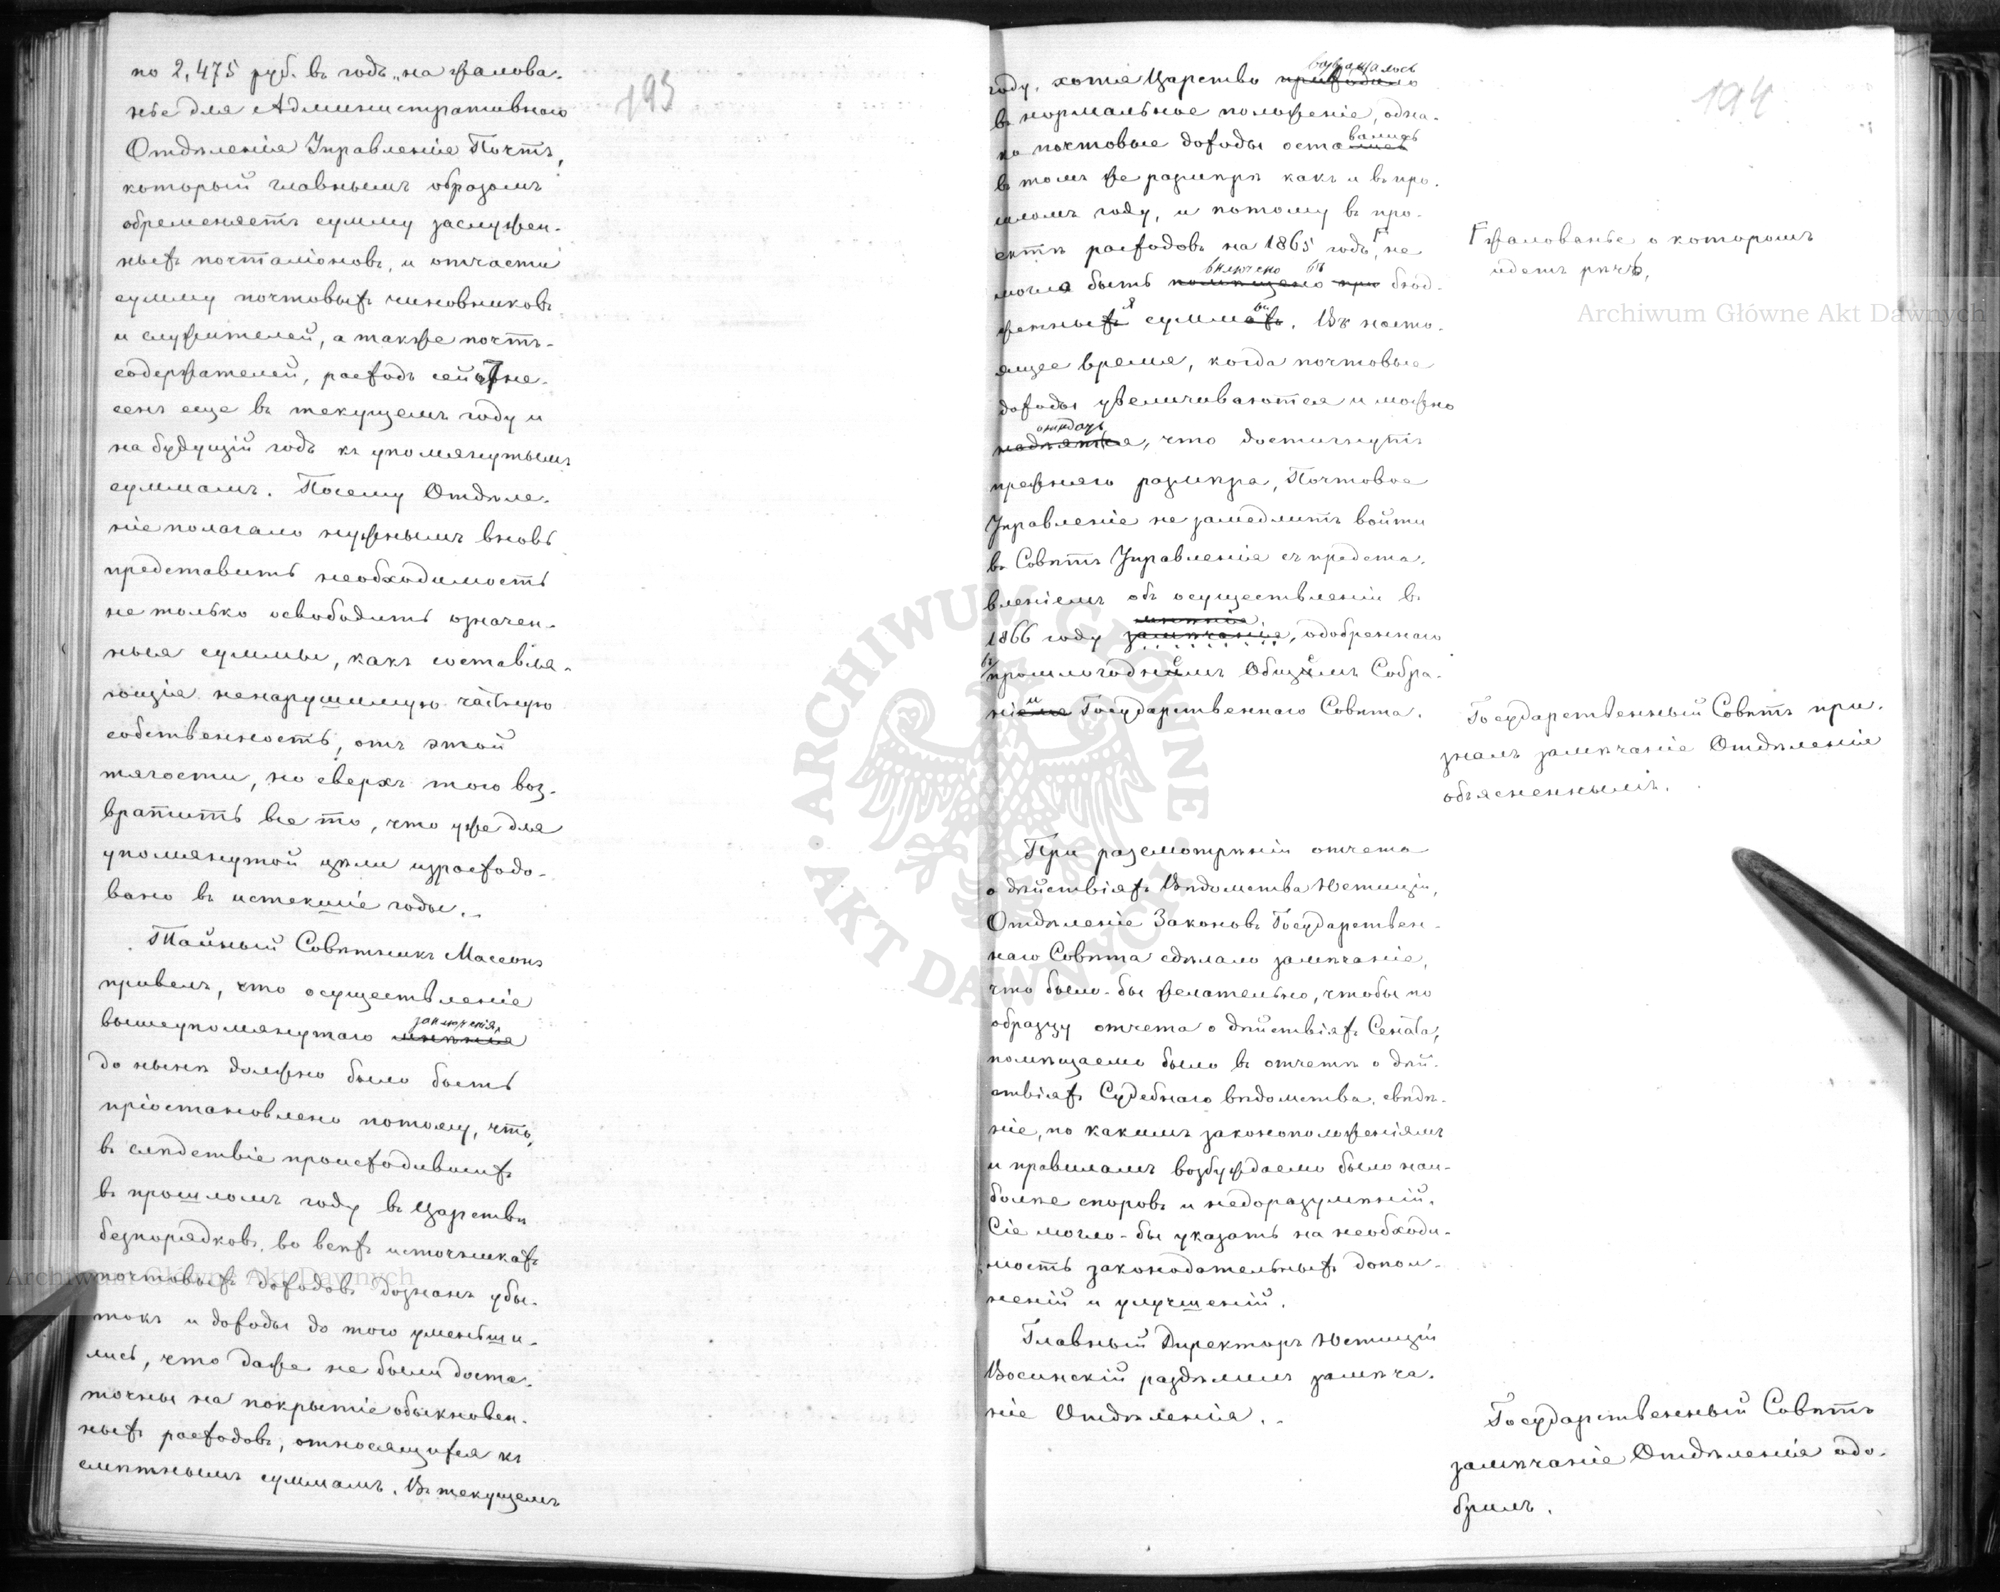 193
по 2,475 руб. въ годъ „на жалова-
нье для Административнаго
Отдѣленія Управленія Почтъ,
который главнымъ образомъ
обременяетъ сумму заслужен-
ныхъ почталіоновъ, и отчасти
сумму почтовыхъ чиновниковъ
и служителей, а также почтъ-
содержателей, расходъ сей отне-
сенъ еще въ текущемъ году и
на будущій годъ къ упомянутымъ
суммамъ. Посему Отдѣле-
ніе полагало нужнымъ вновь
представить необходимость
не только освободить означен-
ныя суммы, какъ составля-
ющія ненарушимую частную
собственность, отъ этой
тягости, но сверхъ того воз-
вратить все то, что уже для
упомянутой цѣли израсходо-
вано въ истекшіе годы.
Тайный Совѣтникъ Массонъ
привелъ, что осуществленіе
заключенія
вышеупомянутаго мнѣнія
до нынѣ должно было быть
пріостановлено потому, что,
въ слѣдствіе происходившихъ
въ прошломъ году въ Царствѣ
безпорядковъ, во всѣхъ источникахъ
почтовыхъ доходовъ дознанъ убы-
токъ и доходы до того уменьши-
лись, что даже не были доста-
точны на покрытіе обыкновен-
ныхъ расходовъ, относящихся къ
смѣтнымъ суммамъ. Въ текущемъ
194
возвращалось
году, хотя Царство приходило
въ нормальное положеніе, одна-
вались
ко почтовые доходы остались
въ томъ же размѣрѣ какъ и въ про-
шломъ году, и потому въ про-
ектѣ расходовъ на 1865 годъ, не
включено въ
могло быть помѣщено при бюд-
жетныхъ суммахъ. Въ насто-
ящее время, когда почтовые
доходы увеличиваются и можно
ожидать
надѣяться, что достигнутъ
прежняго размѣра, Почтовое
Управленіе не замедлитъ войти
въ Совѣтъ Управленія съ предста-
вленіемъ объ осуществленіи въ
мнѣнія
1866 году замѣчанія, одобреннаго
въ прошлогоднемъ Общемъ Собра-
ніи Государственнаго Совѣта.
жалованье о которомъ
идетъ рѣчь,
Государственный Совѣтъ при-
зналъ замѣчаніе Отдѣленія
объясненнымъ.
При разсмотрѣніи отчета
о дѣйствіяхъ Вѣдомства Юстиціи,
Отдѣленіе Законовъ Государствен-
наго Совѣта сдѣлало замѣчаніе,
что было-бы желательно, чтобы по
образцу отчета о дѣйствіяхъ Сената,
помѣщаемо было въ отчетѣ о дѣй-
ствіяхъ Судебнаго вѣдомства, свѣдѣ-
ніе, по какимъ законоположеніямъ
и правиламъ возбуждаемо было наи-
болѣе споровъ и недоразумѣній.
Сіе могло-бы указать на необходи-
мость законодательныхъ допол-
неній и улучшеній.
Главный Директоръ Юстиціи
Восинскій раздѣлилъ замѣча-
ніе Отдѣленія.
Государственный Совѣтъ
замѣчаніе Отдѣленія одо-
брилъ.
Archiwum Główne Akt Dawnych
Archiwum Główne Akt Dawnych
ARCHIWUM GŁÓWNE
AKT DAWNYCH